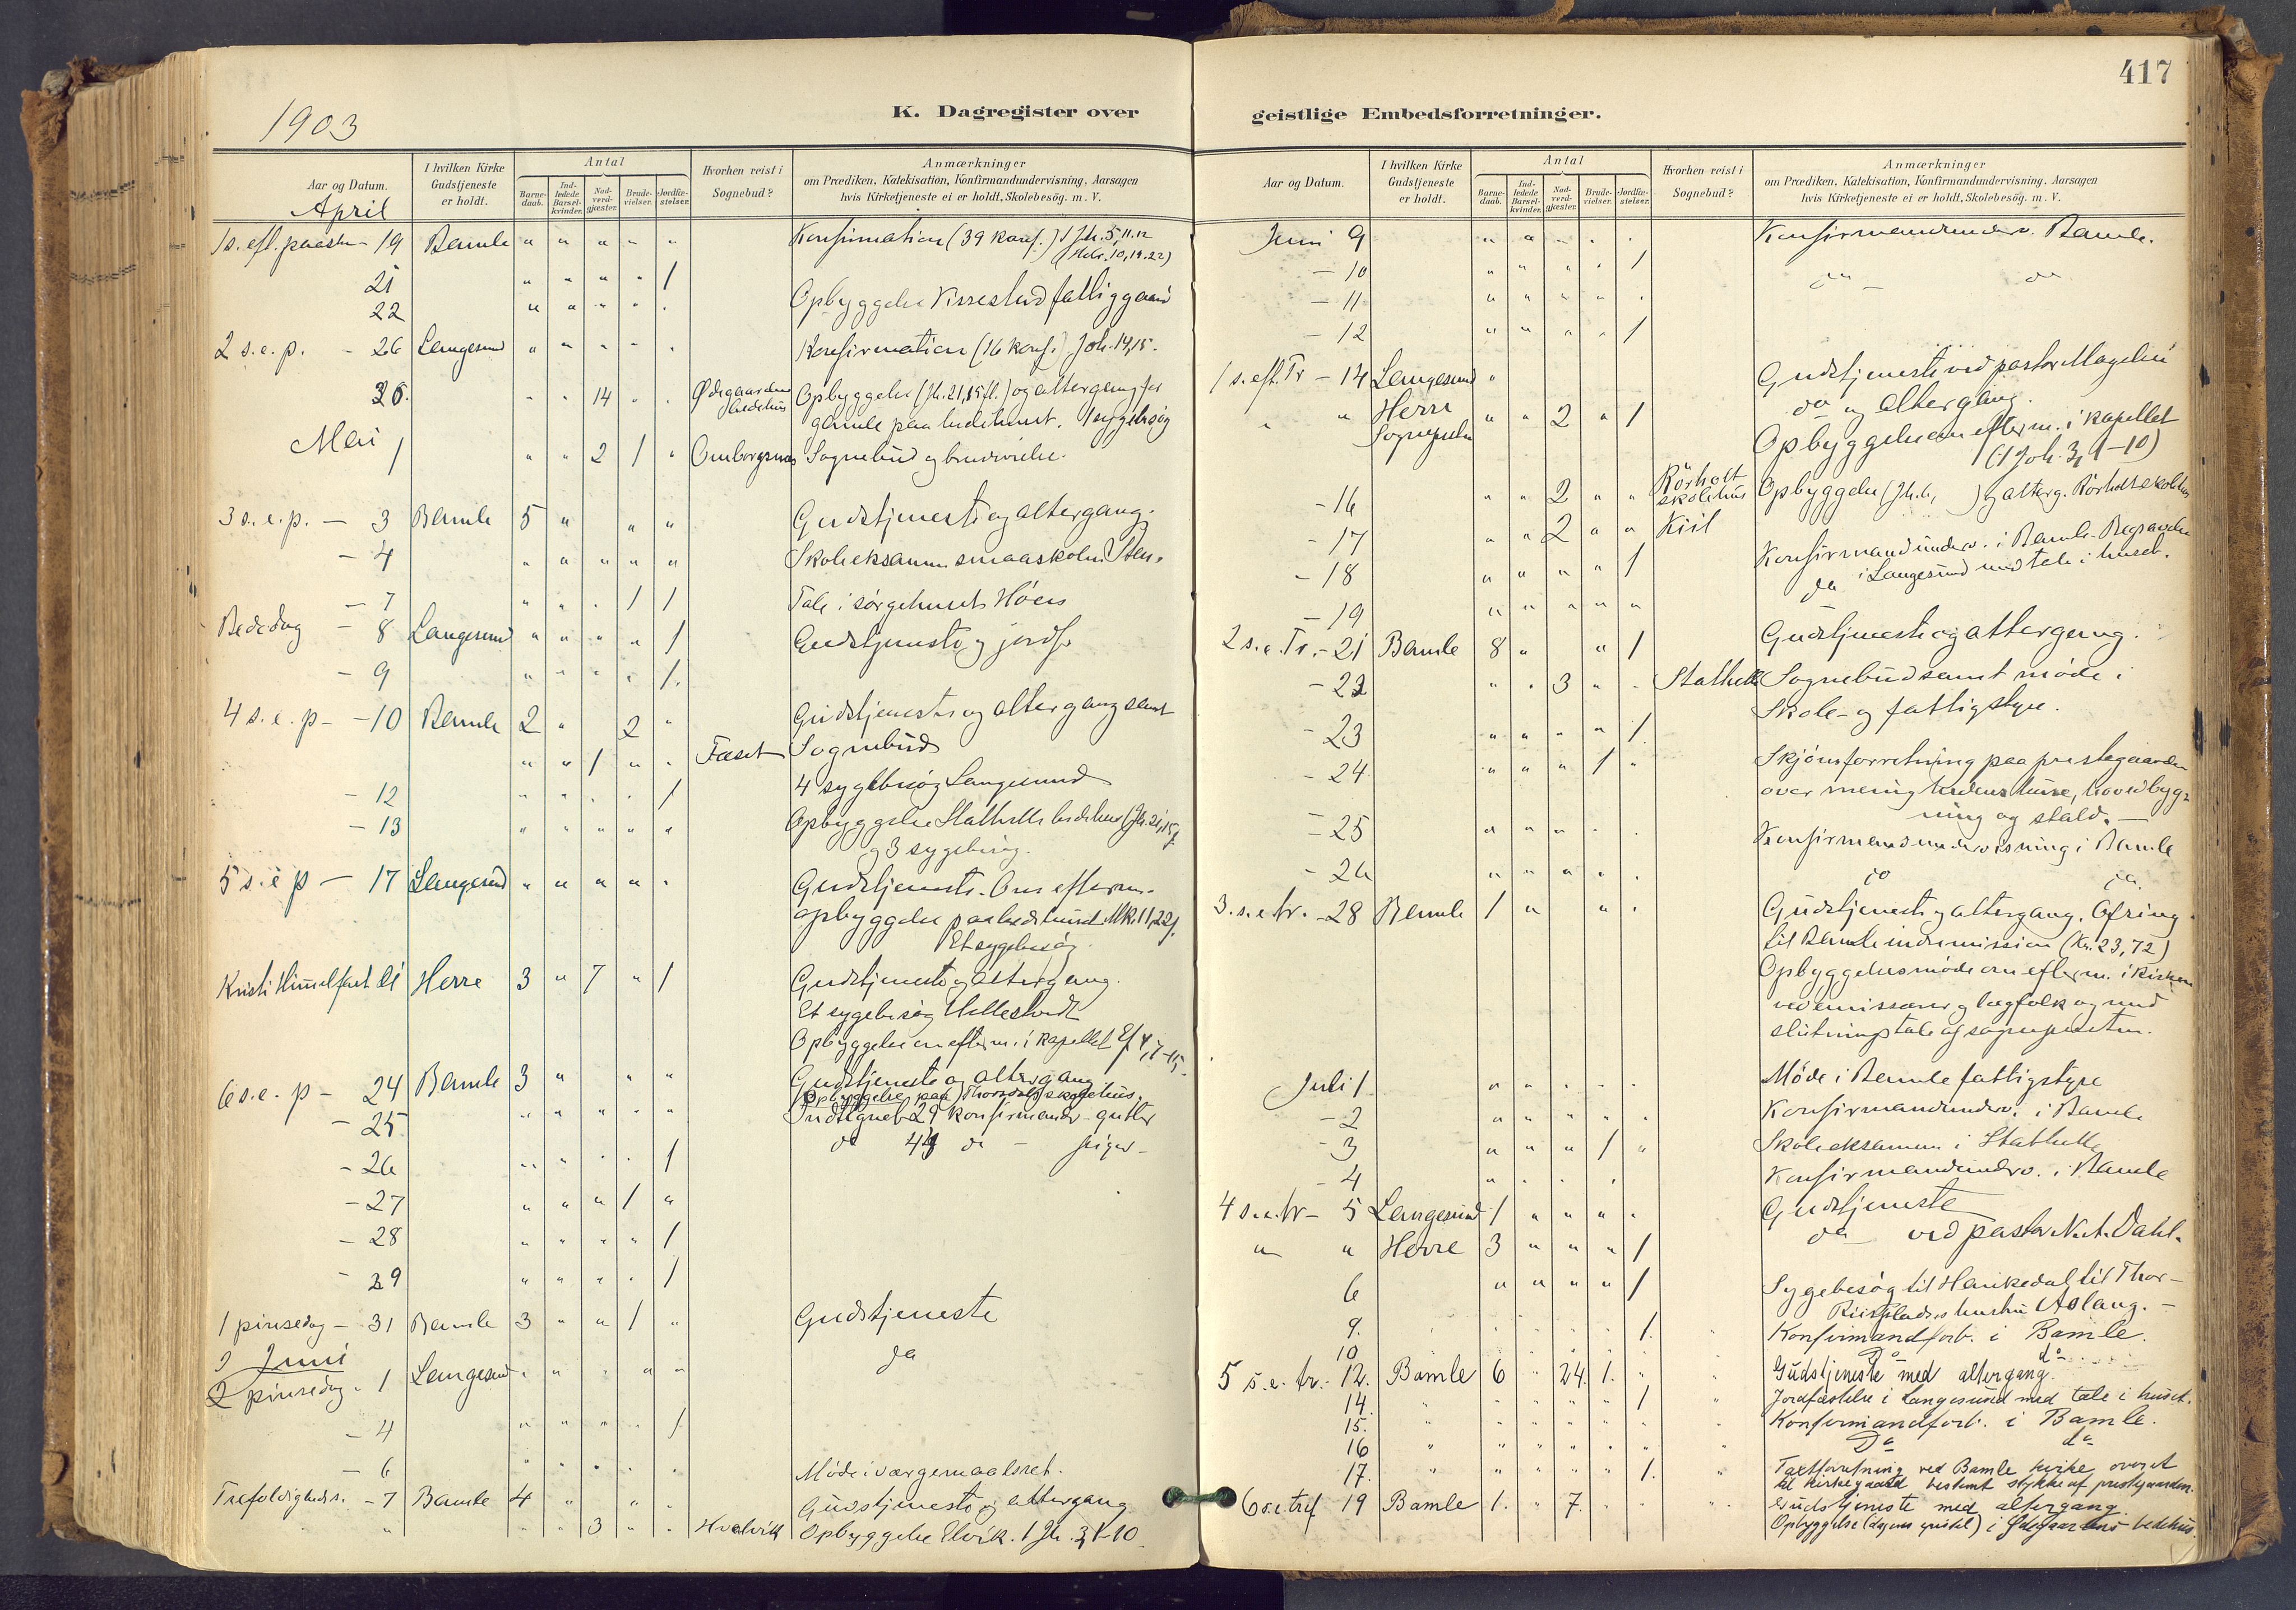 417
1903
K. Dagregister over
geistlige Embedsforretninger.
Aar og Datum.
I hvilken Kirke Gudstjeneste er holdt.
Antal
Barnedaab.
Indledede Barselkvinder.
Nadverdgjæster.
Brudevielser.
Jordfæstelser.
Hvorhen reist i Sognebud?
Anmærkninger
om Prædiken, Katekisation, Konfirmandundervisning, Aarsagen
hvis Kirketjeneste ei er holdt, Skolebesög. m. V.
April
1 s. eft. paaske - 19 Bamle " " " " " Konfirmation (39 konf.) 1 Joh. 5, 11.12
21 " " " " 1
22 " " " " " Opbyggelse fattiggaard
2 s. e. p. - 26 Langesund " " " " " Konfirmation (16 konf.) Joh. 14,15.
" " 14 " " Ødegaardens bedehus Opbyggelse (Jh. 21,15 fl.) og altergang for
gamle paa bedehuset. 1 sygebesøg
Mai 1 " " 2 1 " Sognebud og brudevielse.
3 s. e. p. - 3 Bamle 5 " " " Gudstjeneste og altergang.
- 4 " " " " " Skoleeksamen smaaskolen
- 7 " " " 1 1 Tale i sørgehuset Høen
Bededag - 8 Langesund " " " " 1 Gudstjeneste og jordf.
- 9 " " " " 1.
4 s. e. p - - 10 Bamle 2 " 2 " Gudstjeneste og altergang samt
" " 1 " " Sognebud
- 12 " " " " 1 4 sygebesøg Langesund
- 13 " " " " " Opbyggelse Stathelle bedehus (Jh. 21,15 f.
og 3 sygebesøg.
5 s. e p - 17 Langesund " " " " " Gudstjeneste. Om efterm.
opbyggelse paa bedehuset Mk. 11,22 f.
Et sygebesøg
Kristi Himmelfart 21 Herre 3 " 7 " 1 Gudstjeneste og altergang.
Et sygebesøg
Opbyggelse om efterm. i kapellet Ef 4, 7-15.
6 s. e. p - 24 Bamle 3 " " " Gudstjeneste og altergang
Opbyggelse paa skolehus.
- 25 " " " " " Indtegnet 29 konfirmander - gutter
- 26 " " " " 1 do do - piger -
- 27 " " " 1 "
- 28 " " " " 1
- 29 " " " " 1
1 pinsedag - 31 Bamle 3 " " 1 " Gudstjeneste
Juni
2 pinsedag - 1 Langesund " " " " " do
- 4 " " " " 1
- 6 " " " " " Møde i værgemaalsret.
Trefoldigheds. - 7 Bamle 4 " " " Gudstjeneste og altergang
" " " 3 " " Hvalvik Opbyggelse Elvik. 1 Jh. 3, 1-10.
Aar og Datum.
I hvilken Kirke Gudstjeneste er holdt.
Antal
Barnedaab.
Indledede Barselkvinder.
Nadverdgjæster.
Brudevielser.
Jordfæstelser.
Hvorhen reist i Sognebud?
Anmærkninger
om Prædiken, Katekisation, Konfirmandundervisning, Aarsagen
hvis Kirketjeneste ei er holdt, Skolebesög. m. V.
Juni 9 " " " " " Konfirmandunderv. Bamle.
- 10 " " " " 1 do - do
- 11 " " " " "
- 12 " " " " 1
1 s. eft. Tr - 14 Langesund " Gudstjeneste ved pastor
" " Herre " " 2 " 1 do og altergang.
Sognepresten Opbyggelse om efterm. i kapellet
(1 Joh. 3, 1-10)
- 16 " " 2 " " Rörholt skolehus Opbyggelse (Jh. 6, ) og alterg. Rörholt skolehus
- 17 " " 2 " " Kiil
- 18 " " " " 1 Konfirmandunderv. i Bamle. Begravelse
- 19 " " " " " do i Langesund med tale i huset.
2 s. e. Tr. - 21 Bamle 8 " " 1 Gudstjeneste og altergang.
- 22 " " 3 " " Stathelle Sognebud samt møde i
Skole- og fattigstyre.
- 23 " " " " 1.
- 24 " " " 1 " Skjönsforretning paa prestegaarden
over menighedens huse, hovedbyg-
ning og stald. -
- 25 " " " " " Konfirmandundervisning i Bamle
- 26 " " " " " do do.
3. s. e tr. - 28 Bamle 1 " " " Gudstjeneste og altergang. Ofring
til Bamle indremission (Kr. 23,72)
Opbyggelsesmøde om efterm. i kirken
ved emissærer og lægfolk og med
slutningstale af sognepresten.
Juli 1 " " " " " Möde i Bamle fattigstyre
- 2 " " " " " Konfirmandunderv. i Bamle
- 3 " " " 1 " Skoleeksamen i Stathelle
- 4 " " " " Konfirmandunderv. i Bamle
4 s. e. tr - 5 Langesund 1 " " " " Gudstjeneste
" " Herre 3 " " " 1 do ved pastor N. A. Dahl.
6 " " " " 1 Sygebesög til Hankedal til Thor-
hustru Aslaug. -
9. " " " " 1. Konfirmandforb. i Bamle.
10 " " " " " Do do
5 s. e. tr. - 12. Bamle 6 " 24. 1. " Gudstjeneste med altergang.
14. " " " " " 1 Jordfæstelse i Langesund med tale i huset.
15. " " " " " " Konfirmandforb. i Bamle.
16 " " " " " " Do do
17. " " " " " 1. Taxtforretning ved Bamle kirke over et
til kirkegaard bestemt stykke af prestegaarden.
6 s. e. tref 19 Bamle 1. " 7. " " Gudstjeneste med altergang
Opbyggelse (dagens epistel) i Ødegaardens bedehus.